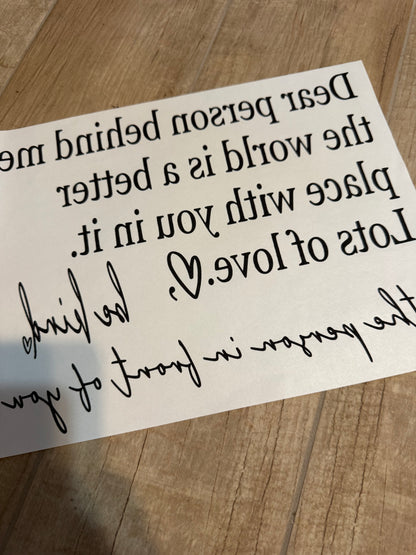 Dear person behind me
the world is a better
place with you in it.
Lots of love.♡,
be kind♡
the person in front of you